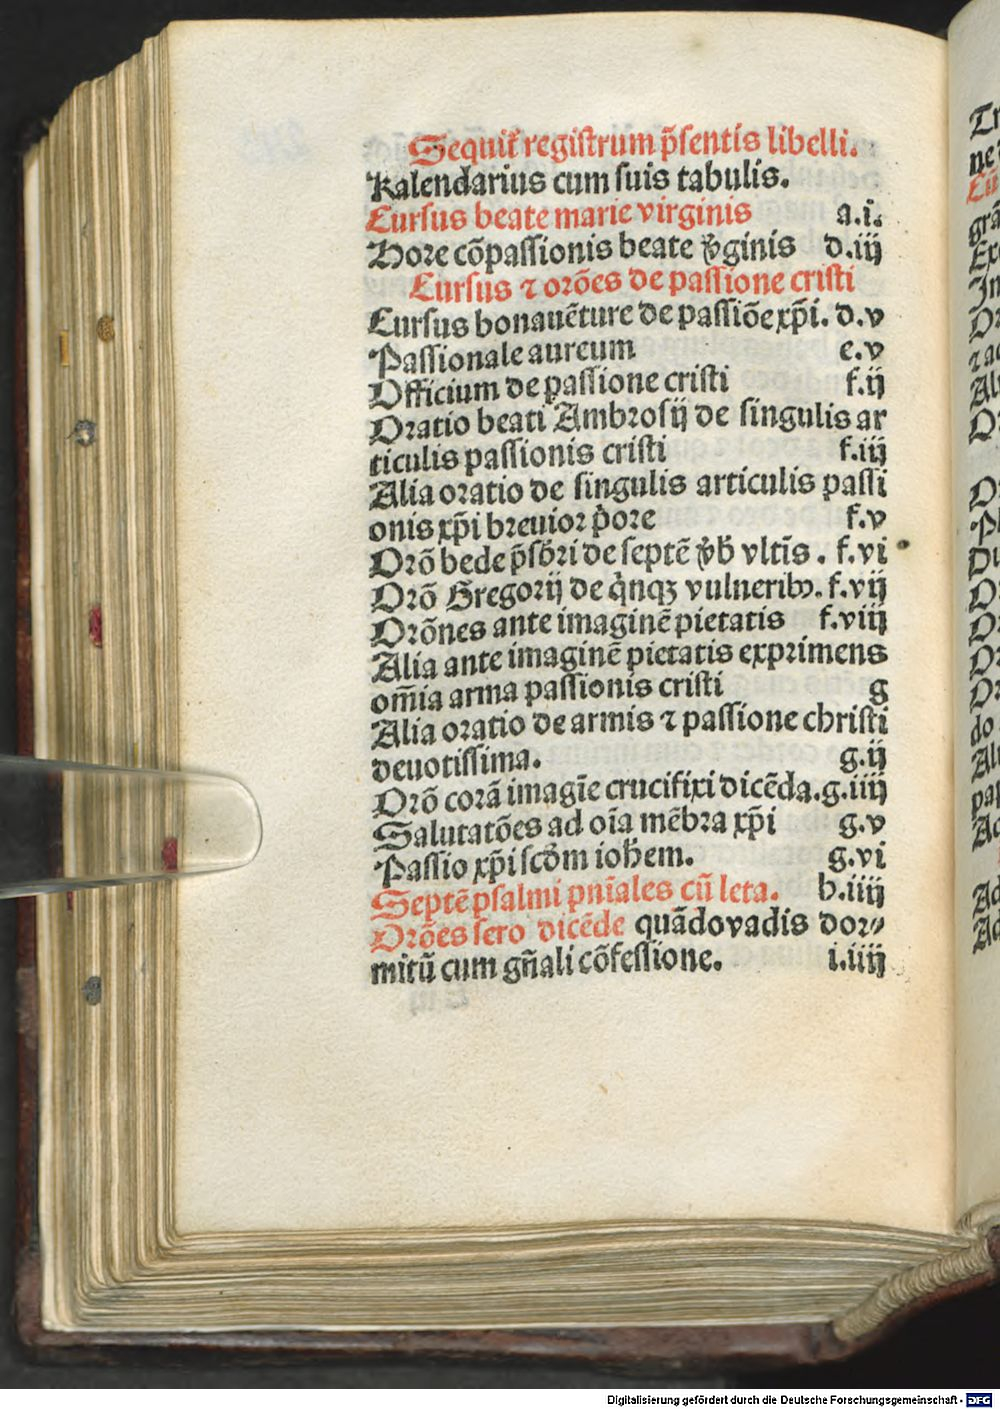 Sequit᷑ registrum p̄sentis libelli.
Kalendarius cum suis tabulis.
Cursus beate marie virginis a.i.
Hore cōpassionis beate v̾ginis d.iij
Cursus ⁊ orōes de passione cristi
Cursus bonauēture de passiōe xp̄i. d.v
Passionale aureum e.v
Officium de passione cristi f.ij
Oratio beati Ambrosij de singulis ar
ticulis passionis cristi f.iij
Alia oratio de singulis articulis passi
onis xp̄i breuior p̍ore f.v
Orō bede p̄sb̄ri de septē v̾b̄ vltīs . f.vi
Orō Gregorij de q̍nqꝫ vulneribꝰ. f.vij
Orōnes ante imaginē pietatis f.viij
Alia ante imaginē pietatis exprimens
om̄ia arma passionis cristi g
Alia oratio de armis ⁊ passione christi
deuotissima. g.ij
Orō corā imagīe crucifixi dicēda. g.iiij
Salutatōes ad oīa mēbra xp̄i g.v
Passio xp̄i scd̄m ioh̄em. g.vi
Septē psalmi pn̄iales cū leta. h.iiij
Orōes sero dicēde quādo vadis dor⸗
mitū cum gn̄ali cōfessione. i.iiij
Digitalisierung gefördert durch die Deutsche Forschungsgemeinschaft - DFG